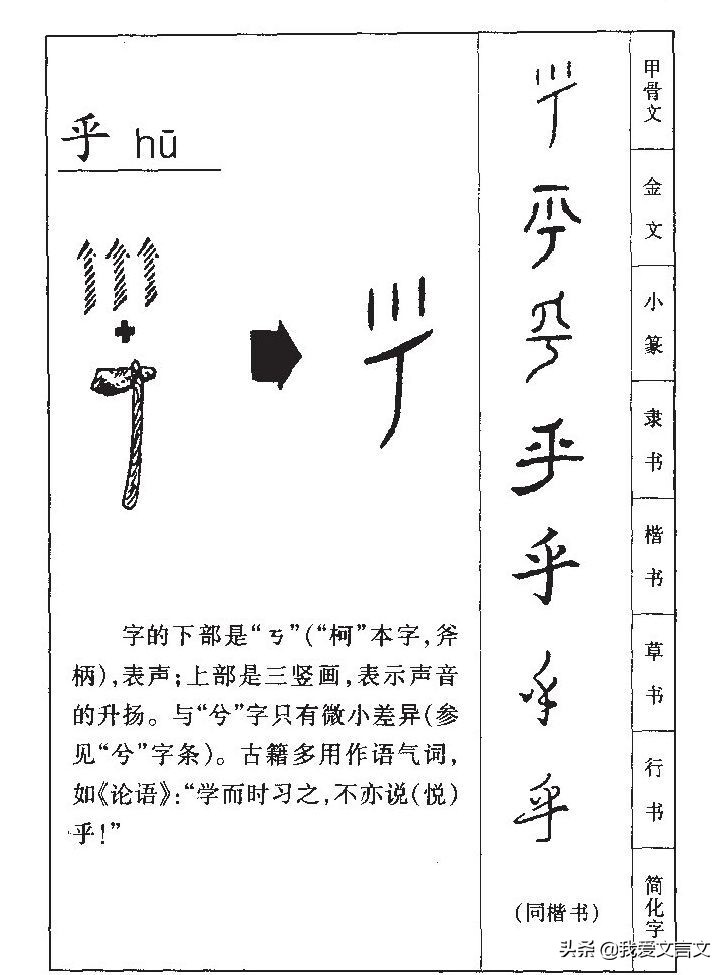 乎 hū
字的下部是“丂”(“柯”本字,斧
柄),表声;上部是三竖画,表示声音
的升扬。与“兮”字只有微小差异(参
见“兮”字条)。古籍多用作语气词,
如《论语》:“学而时习之,不亦说(悦)
乎!”
甲骨文
金文
小篆
乎
隶书
乎
楷书
乎
草书
乎
行书
(同楷书)
简化字
头条 @我爱文言文